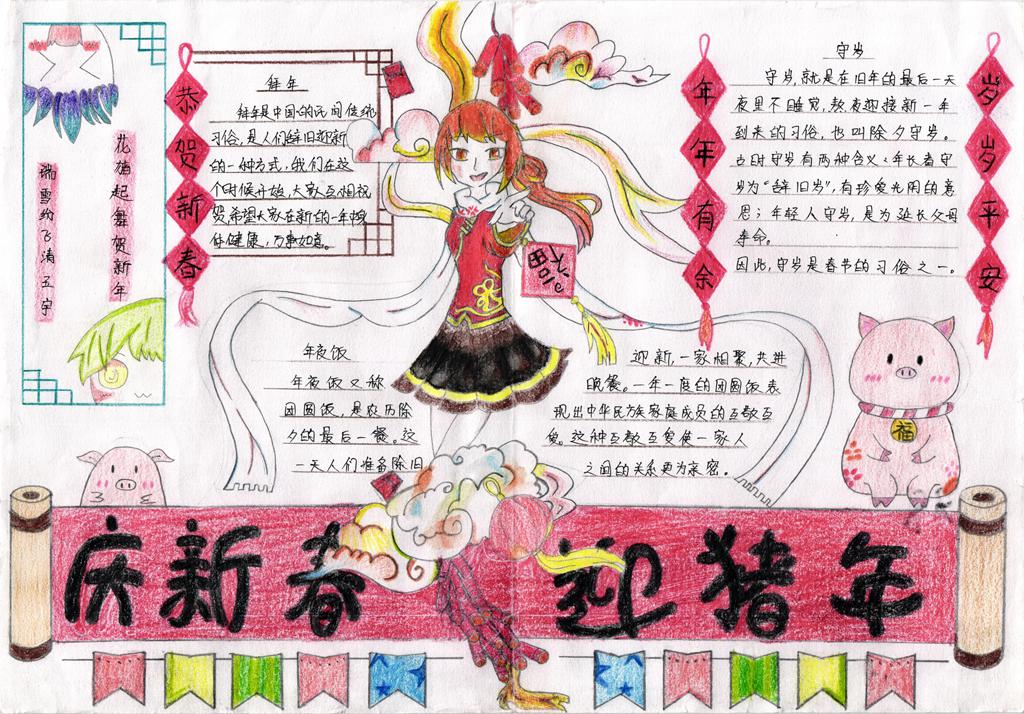 花猪起舞贺新年
瑞雪纷飞清玉宇
恭贺新春
拜年
拜年是中国的民间传统
习俗，是人们辞旧迎新
的一种方式，我们在这
个时候开始，大家互相祝
贺希望大家在新的一年身
体健康，万事如意。
福
年年有余
守岁
守岁，就是在旧年的最后一天
夜里不睡觉，熬夜迎接新一年
到来的习俗，也叫除夕守岁。
古时守岁有两种含义：年长者守
岁为“辞旧岁”，有珍爱光阴的意
思；年轻人守岁，是为延长父母
寿命。
因此，守岁是春节的习俗之一。
岁岁平安
年夜饭
年夜饭又称
团圆饭，是农历除
夕的最后一餐。这
一天人们准备除旧
迎新，一家相聚，共进
晚餐。一年一度的团圆饭表
现出中华民族家庭成员的互敬互
爱。这种互敬互爱使一家人
之间的关系更为亲密。
福
庆新春 迎猪年